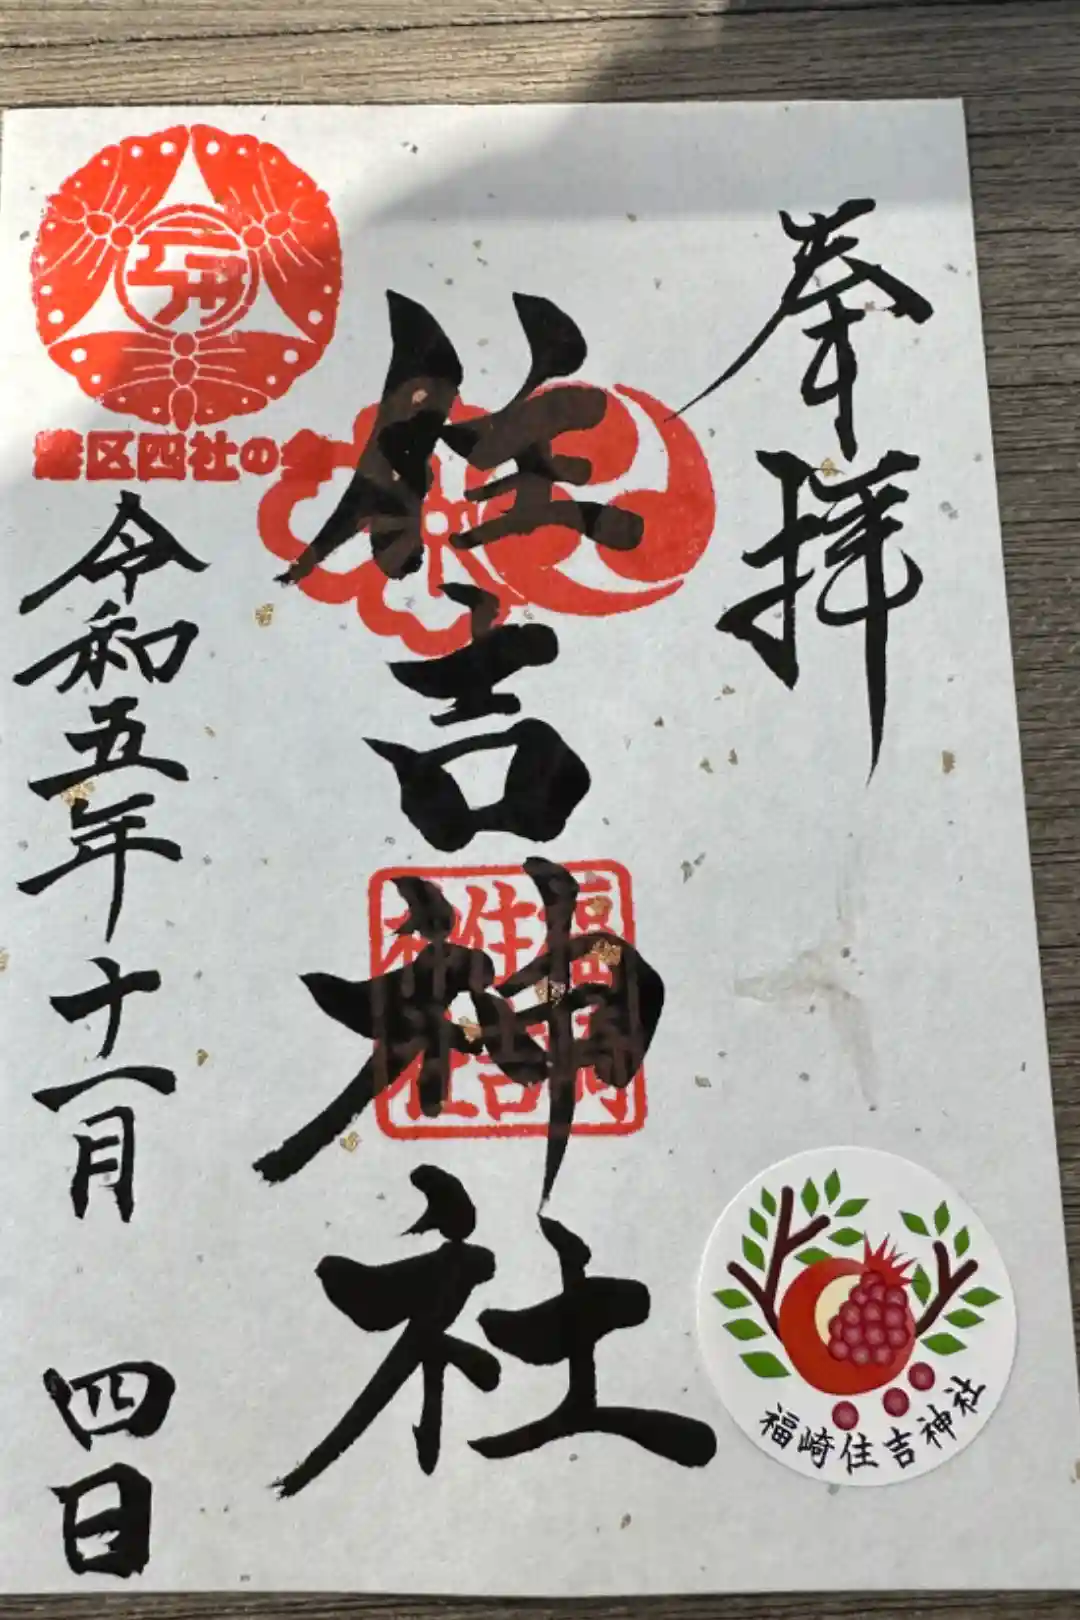 奉拝
住吉神社
福崎
住吉
神社
港区四社の会
令和五年十一月 四日
福崎住吉神社